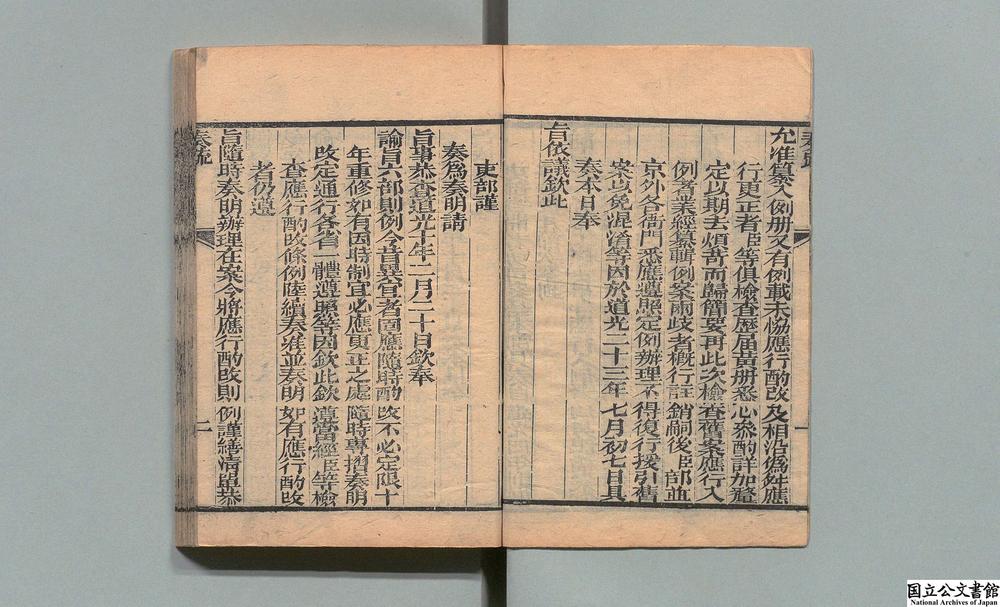 奏疏
允准纂入例册又有例載未協應行酌改及相沿譌舛應
行更正者臣等俱檢查歷届黄册悉心叅酌詳加釐
定以期去煩苛而歸簡要再此次檢查舊案應行入
例者業經纂輯例案兩歧者概行註銷嗣後臣部並
京外各衙門悉應遵照定例辦理不得復行援引舊
案以免混淆等因於道光二十三年七月初七日具
奏本日奉
旨依議欽此
一
吏部謹
奏爲奏明請
旨事恭查道光十年二月二十日欽奉
諭旨六部則例今昔異宜者固應隨時酌改不必定限十
年重修如有因時制宜必應更正之處隨時專摺奏明
改定通行各省一體遵照等因欽此欽遵當經臣等檢
查應行酌改條例陸續奏准並奏明如有應行酌改
者仍遵
旨隨時奏明辦理在案今將應行酌改則例謹繕清單恭
奏疏
二
国立公文書館
National Archives of Japan